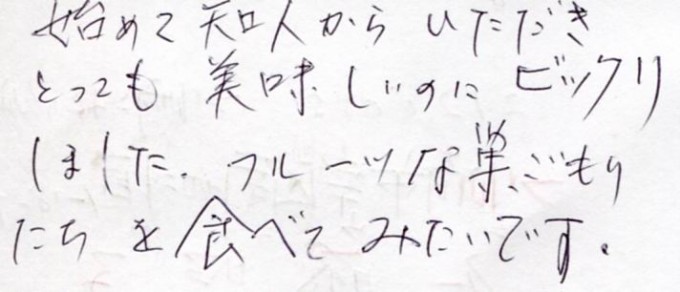 始めて知人からいただき
とっても美味しいのにビックリ
しました。フルーツな巣ごもり
たちを食べてみたいです。